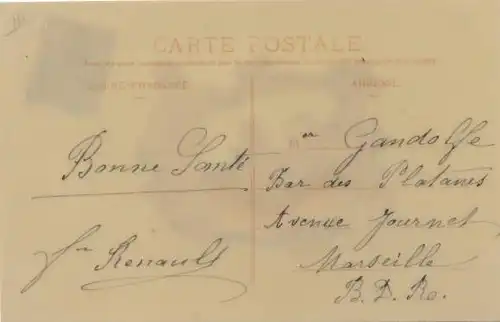 CARTE POSTALE
CORRESPONDANCE
ADRESSE
Bonne Santé
Renault
Mer Gandolfe
Bar des Platanes
Avenue Journet
Marseille
B. D. Ro.